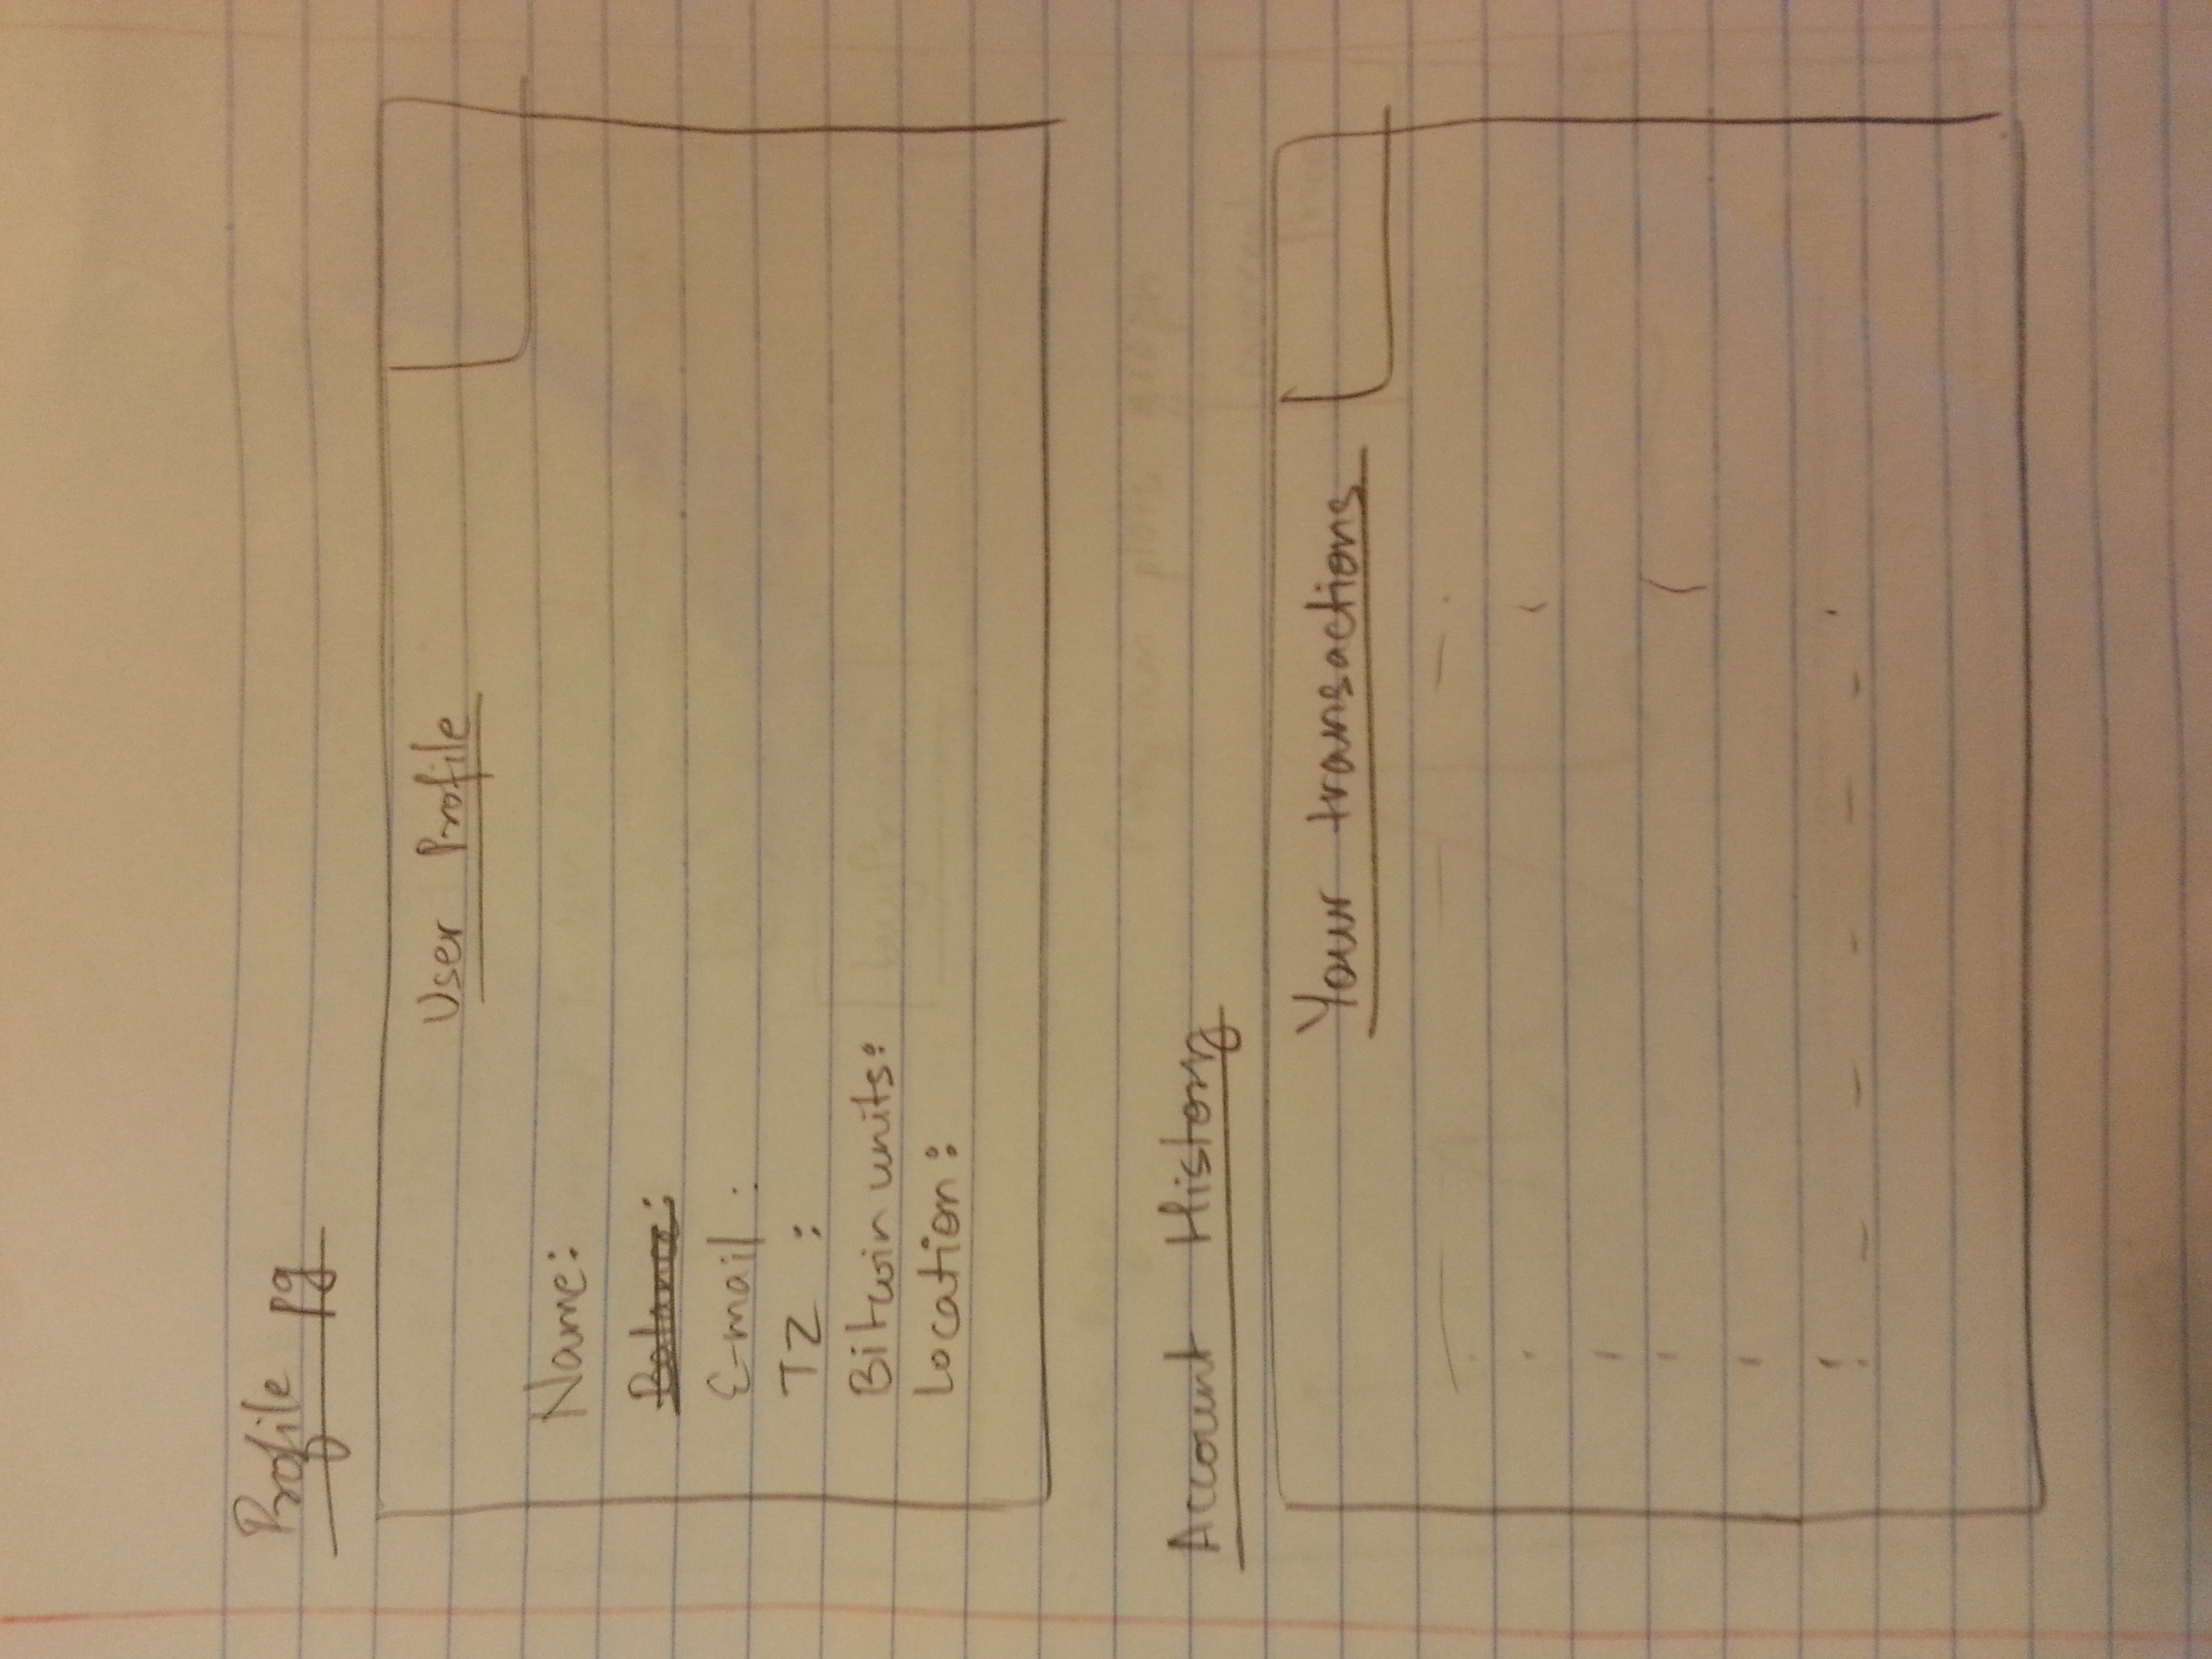 Profile pg
User Profile
Name:
Balance:
E-mail :
TZ :
Bitcoin units:
Location:
Account History
Your transactions